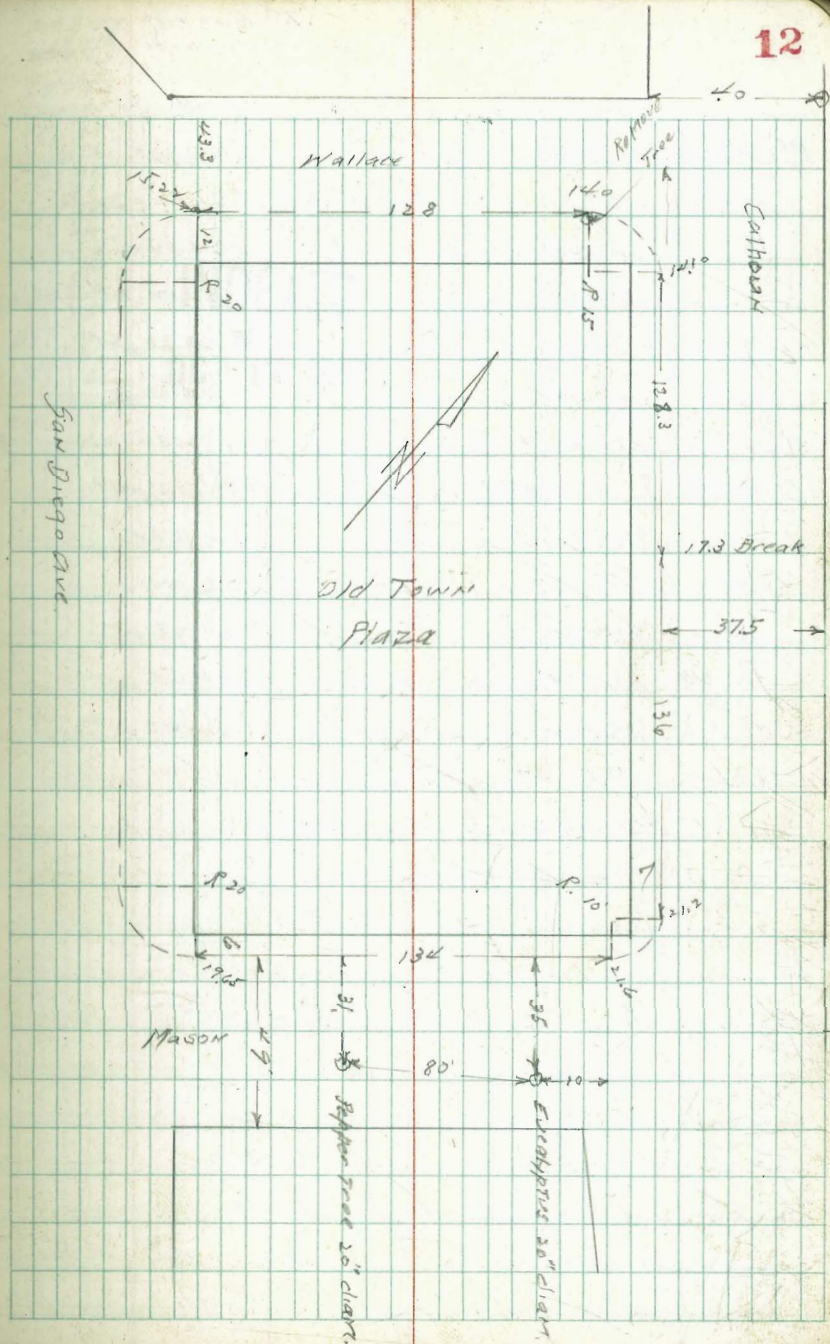 12
40
43.3
Wallace
Remove
Tree
15.22
128
14.0
12
Calhoun
R 20
R 15
14.10
128.3
San Diego Ave.
N
17.3 Break
Old Town
Plaza
37.5
136
R 20
R. 10'
7
21.2
6
134
19.65
21.6
Mason
49'
31
35
80'
10
Pepper Tree 20" diam.
Eucalyptus 30" diam.